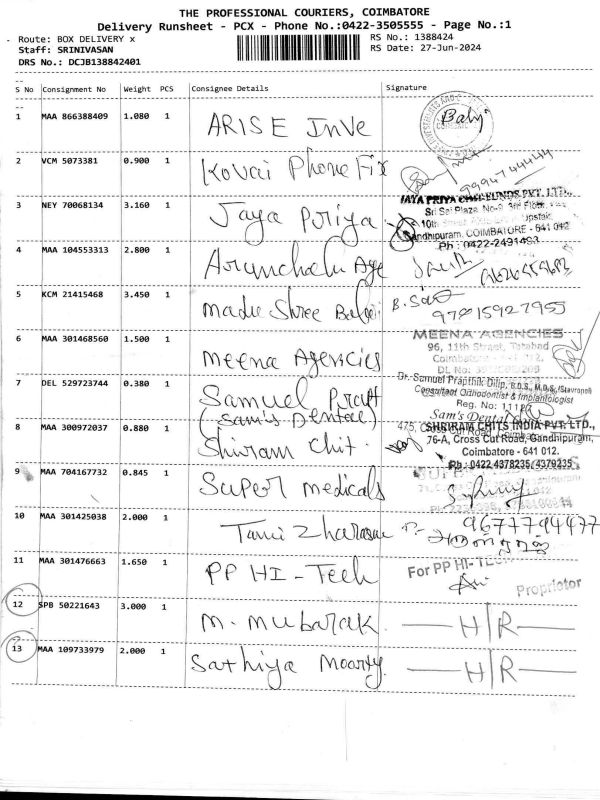 THE PROFESSIONAL COURIERS, COIMBATORE
Delivery Runsheet - PCX - Phone No.:0422-3505555 - Page No.:1
Route: BOX DELIVERY x RS No.: 1388424
Staff: SRINIVASAN RS Date: 27-Jun-2024
DRS No.: DCJB138842401
S No Consignment No Weight PCS Consignee Details Signature
1 MAA 866388409 1.080 1 ARISE Inve Baby
2 VCM 5073381 0.900 1 Kovai Phone Fix 9994744444
3 NEY 70068134 3.160 1 Jaya Priya
JAYA PRIYA CHIT FUNDS PVT. LTD.,
Sri Sai Plaza, No-9, 3rd Floor,
10th Upstair,
Gandhipuram, COIMBATORE - 641 012
Ph : 0422-2491493
4 MAA 104553313 2.800 1 Arunchalu Age
5 KCM 21415468 3.450 1 Madu Shree Balaji B.
6 MAA 301468560 1.500 1 Meena Agencies
MEENA AGENCIES
96, 11th Street, Tatabad
Coimbatore 012.
DL No:
7 DEL 529723744 0.380 1 Samuel Pratt
(Sam's Dental)
Dr. Samuel Prapthik Dilip, B.D.S., M.D.S, (Stavropol)
Consultant Orthodontist & Implantologist
Reg. No:
Sam's Dental
475, Cross Cut Road
8 MAA 300972037 0.880 1 Shriram Chit.
SHRIRAM CHITS INDIA PVT. LTD.,
76-A, Cross Cut Road, Gandhipuram,
Coimbatore - 641 012.
Ph : 0422 4378235/4379235
9 MAA 704167732 0.845 1 Super medicals
10 MAA 301425038 2.000 1 Tamizharasu 9677794477
11 MAA 301476663 1.650 1 PP HI-Tech
For PP HI-TECH
Proprietor
12 SPB 50221643 3.000 1 M. Mubarak H/R
13 MAA 109733979 2.000 1 Sathiya Moorty H/R